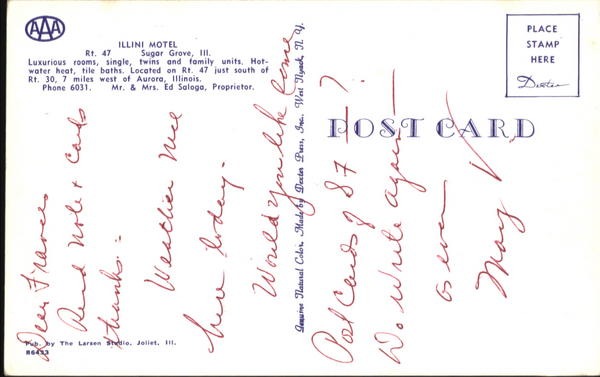 AAA
ILLINI MOTEL
Rt. 47 Sugar Grove, Ill.
Luxurious rooms, single, twins and family units. Hot-
water heat, tile baths. Located on Rt. 47 just south of
Rt. 30, 7 miles west of Aurora, Illinois.
Phone 6031. Mr. & Mrs. Ed Saloga, Proprietor.
Dear Frances
Recd note & cards
thanks.-
Weather nice
here today-
Would you like some
Post Cards of St 7 — ?
Do write again —
as ever
May V
Genuine Natural Color. Made by Dexter Press, Inc., West Nyack, N. Y.
POST CARD
PLACE
STAMP
HERE
Dexter
Pub. by The Larsen Studio, Joliet, Ill.
86433